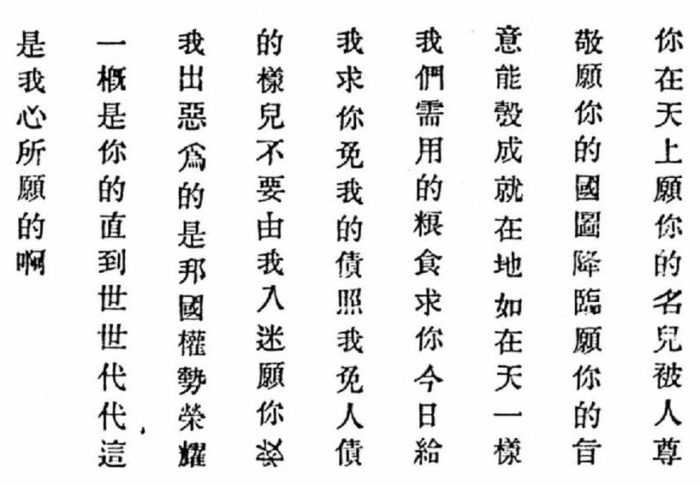 你在天上願你的名兒被人尊
敬願你的國圖降臨願你的旨
意能彀成就在地如在天一樣
我們需用的粮食求你今日給
我求你免我的債照我免人債
的樣兒不要由我入迷願你救
我出惡爲的是那國權勢榮耀
一概是你的直到世世代代這
是我心所願的啊